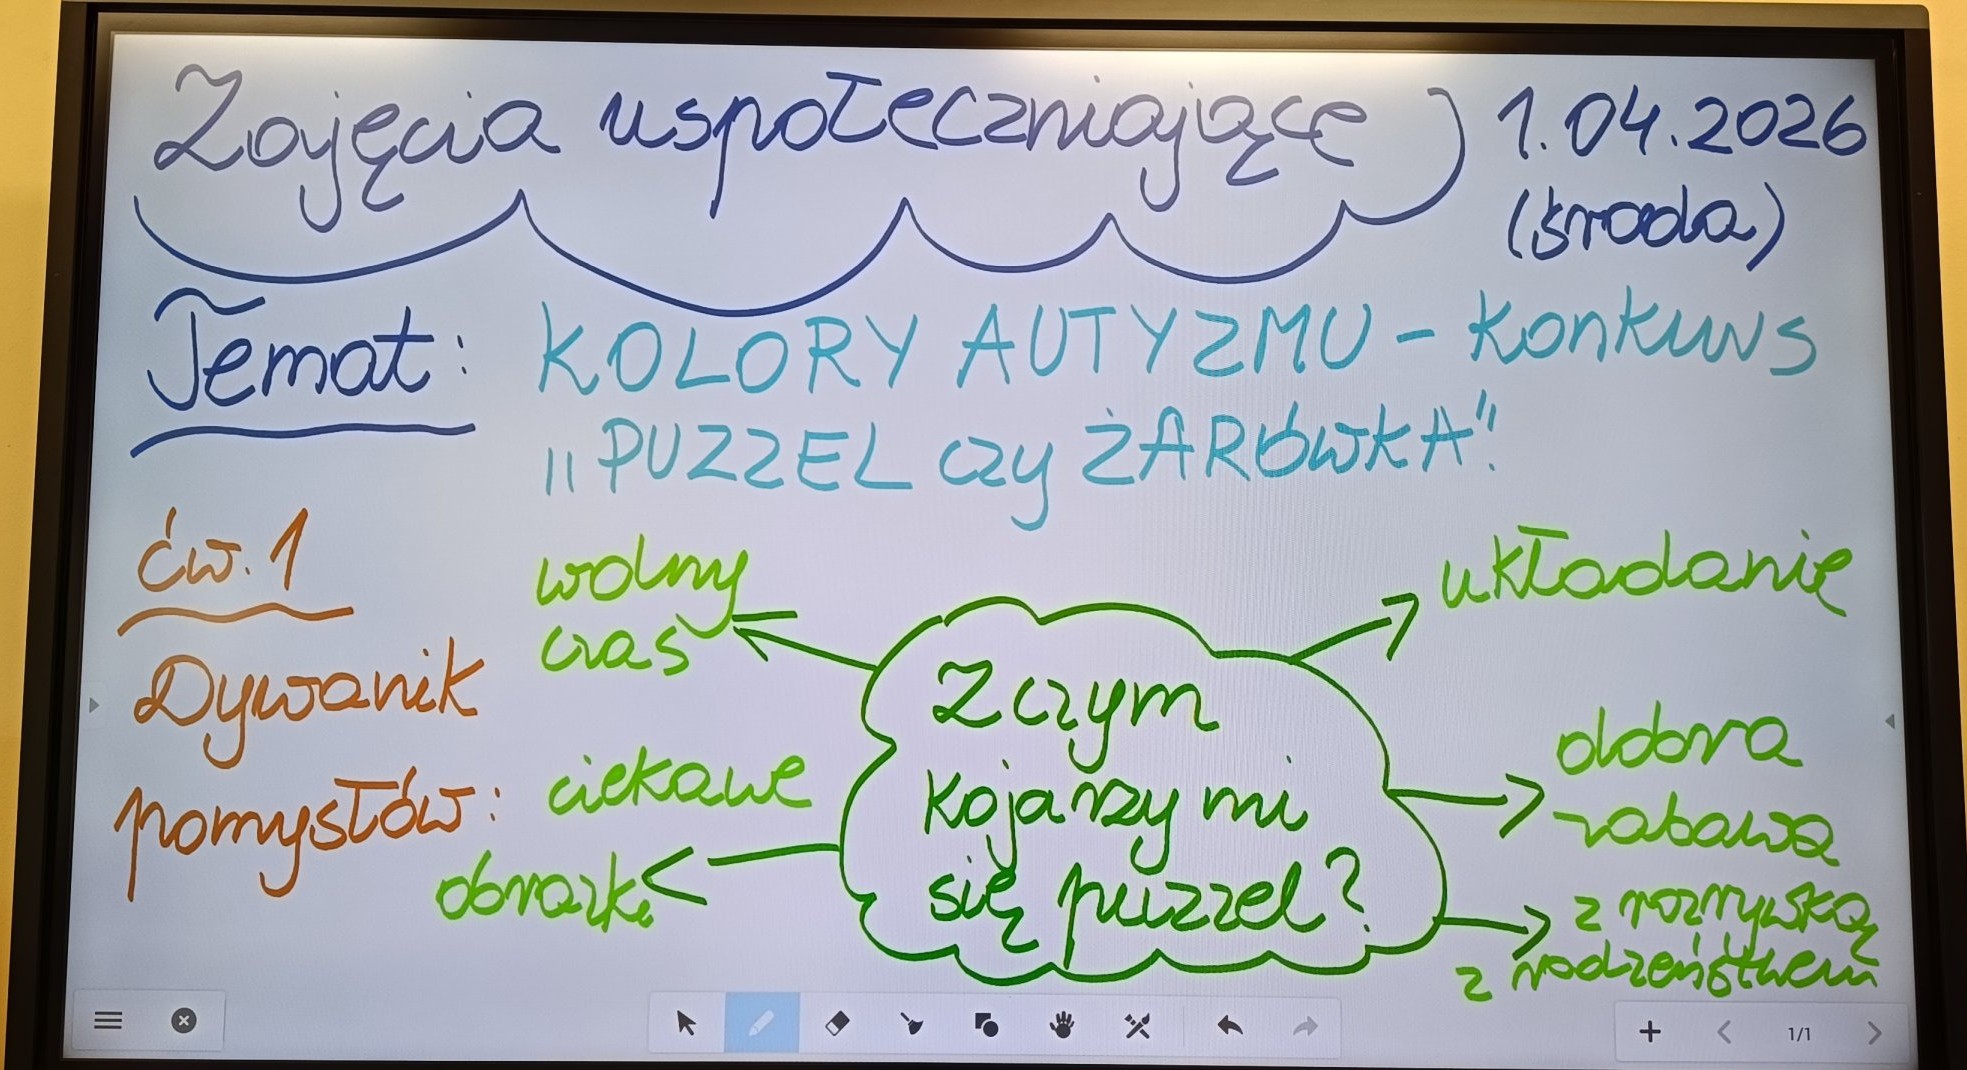 Zajęcia uspołeczniające
1.04.2026
(środa)
Temat: KOLORY AUTYZMU - Konkurs
„PUZZEL czy ŻARÓWKA".
ćw. 1
Dywanik
pomysłów:
wolny
czas
układanie
ciekawe
obrazki
Z czym
kojarzy mi
się puzzel?
dobra
zabawa
z rozrywką
z rodzeństwem
1/1